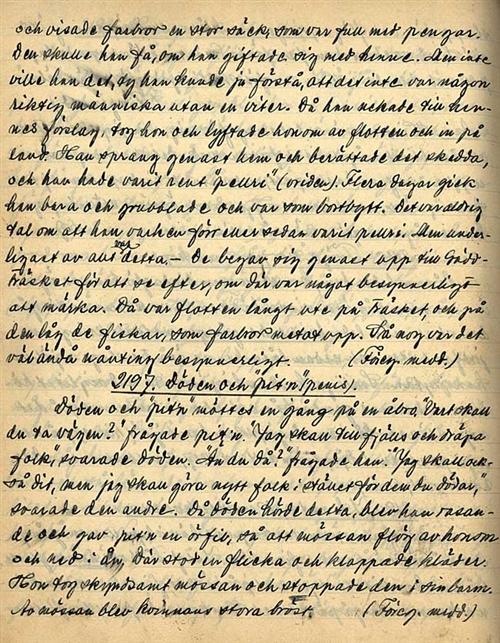 och visade farbror en stor säck, som var full med pengar.
Den skulle han få, om han giftade sig med henne. Men inte
ville han det, ty han kunde ju förstå, att det inte var någon
riktig människa utan en viter. Då han nekade till hen-
nes förslag, tog hon och lyftade honom av flotten och in på
land. Han sprang genast hem och berättade det skedda,
och han hade varit rent "pellri" (vriden). Flera dagar gick
han bara och grubblade och var som bortbytt. Det var aldrig
tal om att han varken förr eller sedan varit pellri. Men under-
ligast av allt var detta. – De begav sig genast upp till Gädd-
träsket för att se efter, om där var något besynnerligt
att märka. Då var flotten långt ute på träsket, och på
den låg de fiskar, som farbror metat upp. Så nog var det
väl ändå nånting besynnerligt. (Föreg. medd.)
2197. Döden och "pit'n" (penis).
Döden och "pit'n" möttes en gång på en åbro. "Vart skall
du ta vägen?" frågade pit'n. "Jag skall till fjälls och dräpa
folk, svarade döden. Än du då?" frågade han. "Jag skall ock-
så dit, men jag skall göra nytt folk i stället för dem du dödar,"
svarade den andre. Då döden hörde detta, blev han rasan-
de och gav pit'n en örfil, så att mössan flög av honom
och ned i ån. Där stod en flicka och klappade kläder.
Hon tog skyndsamt mössan och stoppade den i sin barm.
Av mössan blev kvinnans stora bröst. (Föreg. medd.)